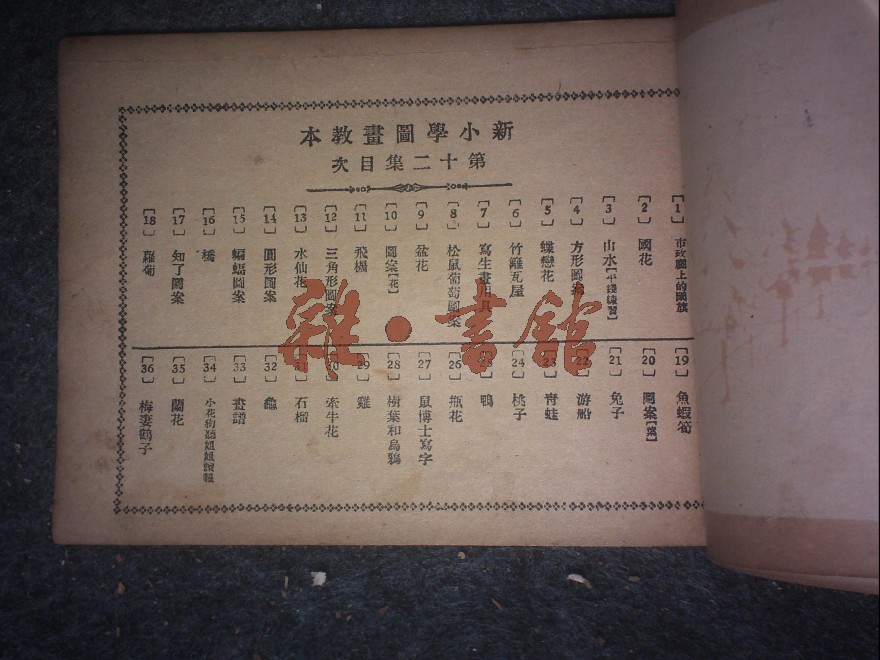 新小學圖畫教本
第十二集目次
[1] 市政廳上的國旗
[2] 國花
[3] 山水
[4] 方形圖案
[5] 蝶戀花
[6] 竹籬瓦屋
[7] 寫生畫用具
[8] 松鼠葡萄圖案
[9] 盆花
[10] 圖案[花]
[11] 飛機
[12] 三角形圖案
[13] 水仙花
[14] 圓形圖案
[15] 蝙蝠圖案
[16] 橋
[17] 知了圖案
[18] 蘿蔔
[19] 魚蝦筍
[20] 圖案
[21] 兔子
[22] 游船
[23] 青蛙
[24] 桃子
[25] 鴨
[26] 瓶花
[27] 鼠博士寫字
[28] 樹葉和烏鴉
[29] 雞
[30] 牽牛花
[31] 石榴
[32] 龜
[33] 畫譜
[34] 小花狗聽姐姐讀報
[35] 蘭花
[36] 梅妻鶴子
雜·書館